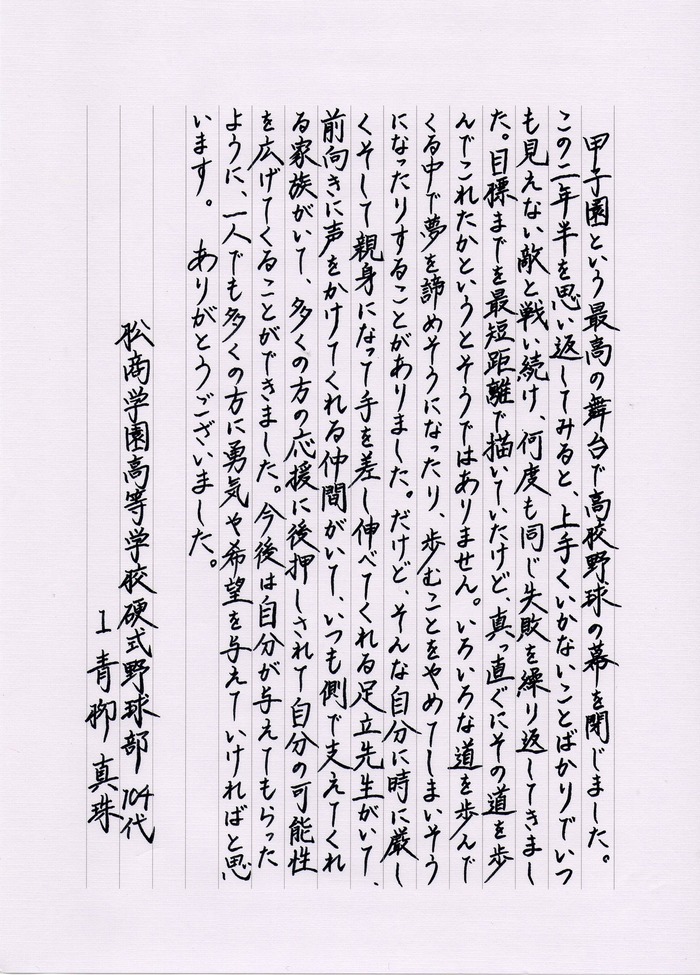 甲子園という最高の舞台で高校野球の幕を閉じました。
この二年半を思い返してみると、上手くいかないことばかりでいつ
も見えない敵と戦い続け、何度も同じ失敗を繰り返してきまし
た。目標までを最短距離で描いていたけど、真っ直ぐにその道を歩
んでこれたかというとそうではありません。いろいろな道を歩んで
くる中で夢を諦めそうになったり、歩むことをやめてしまいそう
になったりすることがありました。だけど、そんな自分に時に厳し
くそして親身になって手を差し伸べてくれる足立先生がいて、
前向きに声をかけてくれる仲間がいて、いつも側で支えてくれ
る家族がいて、多くの方の応援に後押しされて自分の可能性
を広げてくることができました。今後は自分が与えてもらった
ように、一人でも多くの方に勇気や希望を与えていければと思
います。 ありがとうございました。
松商学園高等学校硬式野球部 104代
エ 青柳 真珠